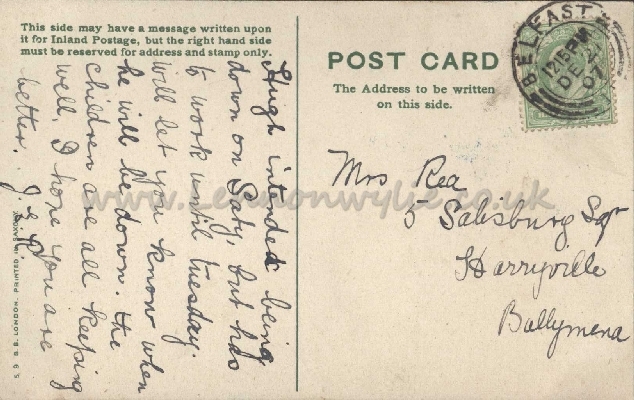 This side may have a message written upon
it for Inland Postage, but the right hand side
must be reserved for address and stamp only.
Hugh intended being
down on Saty, but has
to work until Tuesday.
Will let you know when
he will be down. The
children are all keeping
well, I hope you are
better.
POST CARD
The Address to be written
on this side.
BELFAST
12 15 PM
DE 21
07
Mrs Rea
5 Salisburg Sqr
Harryville
Ballymena
www.Lennonwylie.co.uk
S. B. LONDON. PRINTED IN SAXONY